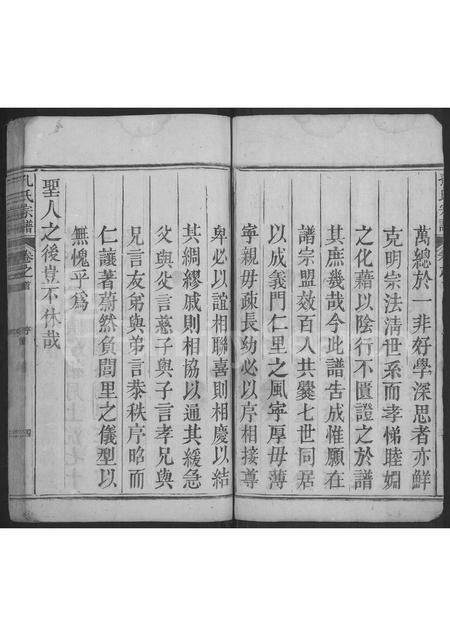 萬總於一非好學深思者亦鮮
克明宗法清世系而孝悌睦婣
之化藉以陰行不匱證之於譜
其庶幾哉今此譜告成惟願在
譜宗盟效百人共爨七世同居
以成義門仁里之風寧厚毋薄
寧親毋疎長幼必以序相接尊
卑必以誼相聯喜則相慶以結
其綢繆戚則相協以通其緩急
父與父言慈子與子言孝兄與
兄言友弟與弟言恭秩序昭而
仁讓著蔚然負閭里之儀型以
無愧乎爲
聖人之後豈不休哉
孔氏宗譜
卷之首
四